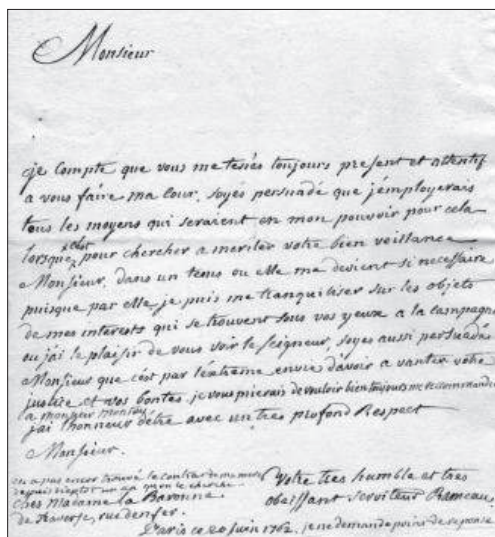 Monsieur
je compte que vous me tenés toujours present et attentif
a vous faire ma Cour, soyés persuadé que j'employerais
tous les moyens qui seraient en mon pouvoir pour cela
lorsque c'est pour chercher a meriter votre bien veillance
Monsieur, dans un tems ou elle me devient si necessaire
puisque par elle, je puis me tranquiliser sur les objets
de mes interests qui se trouvent sous vos yeux a la campagne
ou j'ai le plaisir de vous voir le seigneur, soyes aussi persuadé
Monsieur que c'est par l'extreme envie d'avoir a vanter votre
justice et vos bontés, je vous prierais de vouloir bien toujours me recommander
a monsieur
j'ai l'honneur d'etre avec un tres profond Respect
Monsieur.
on a pas encor trouvé le contrat de
depuis bientot un an qu'on le cherche.
Votre tres humble et tres
ches Madame la Baronne
obeissant serviteur Rameau
de Traverse, rue d'enfer.
Paris ce 20 juin 1762, je ne demande point de reponse